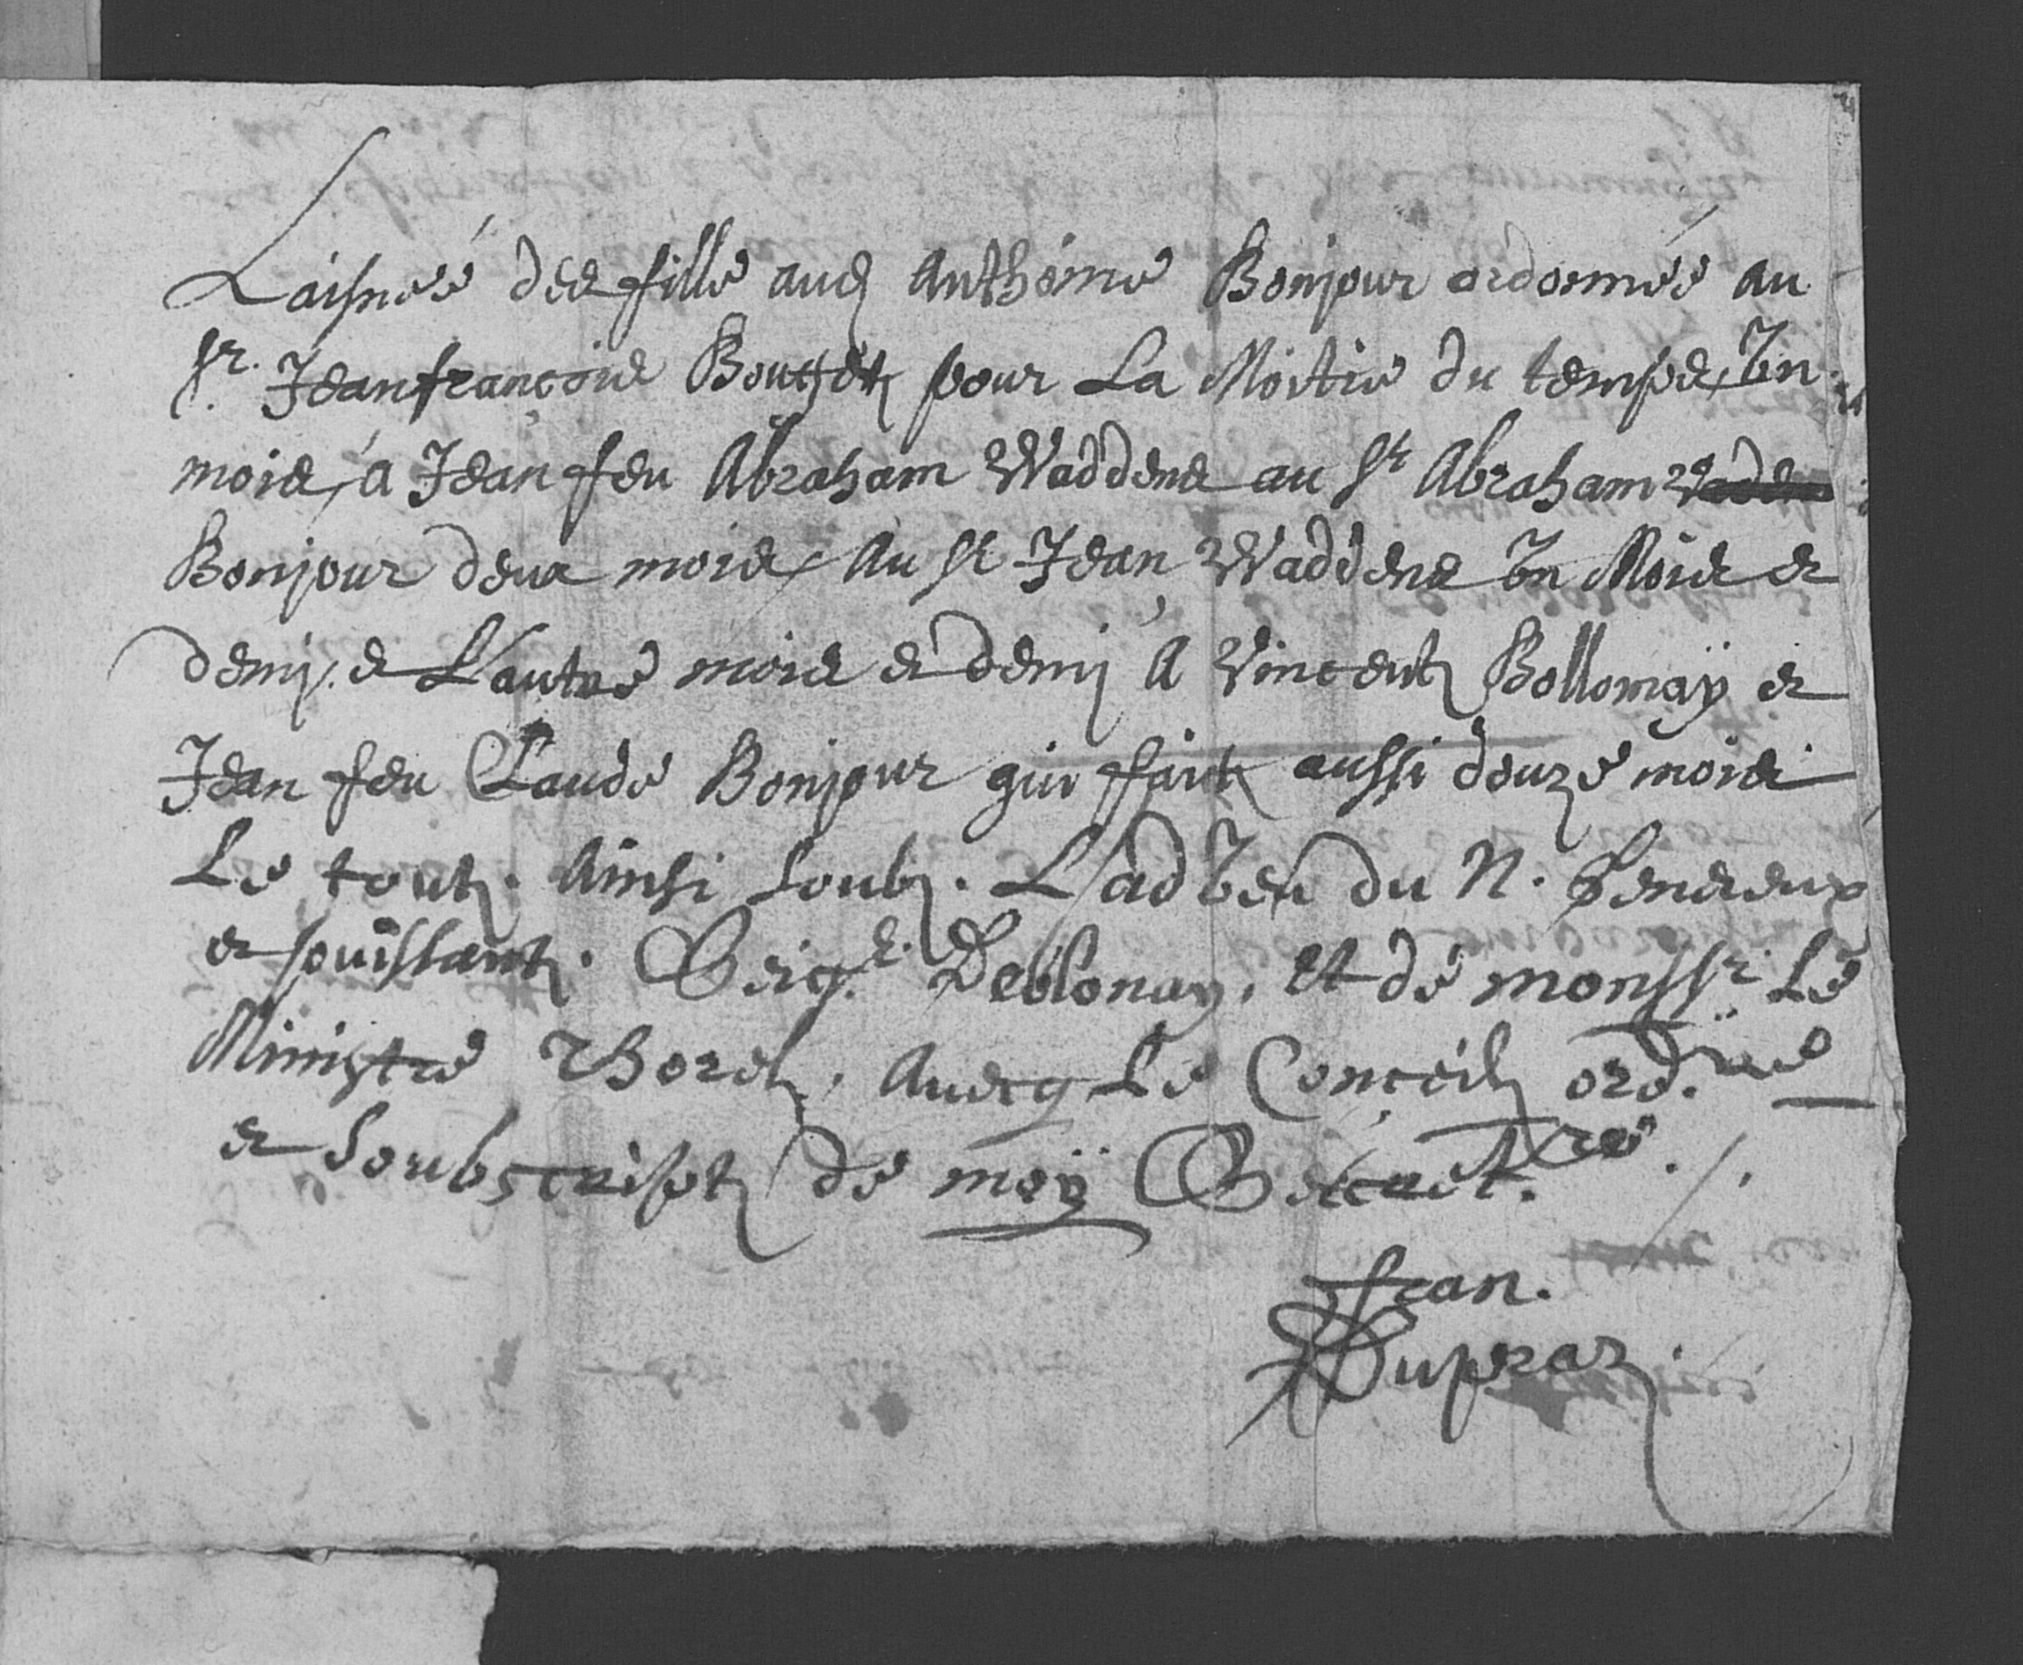 Laisneé des fille aud Anthoine Bonjour ordonnée au
Sr. Jeanfrançois Bouttet pour La Moitie du temps, Vn
mois, a Jean feu Abraham Waddens au Sr Abraham Wadens
Bonjour deux mois, Au Sr Jean Waddens Vn Mois et
demi. et L'autre mois et demi A Vincent Bollomaÿ et
Jean feu Claude Bonjour qui fait aussi douze mois
Le tout. Ainsi soub. L'adveu du N. Genereux
et puissant. Seigr. Deblonay, et de monssr. Le
Ministre Borel, Avecq Le Conceil ord.re
et soubscript de moÿ Secret.re ./.
fran.
Dupraz.